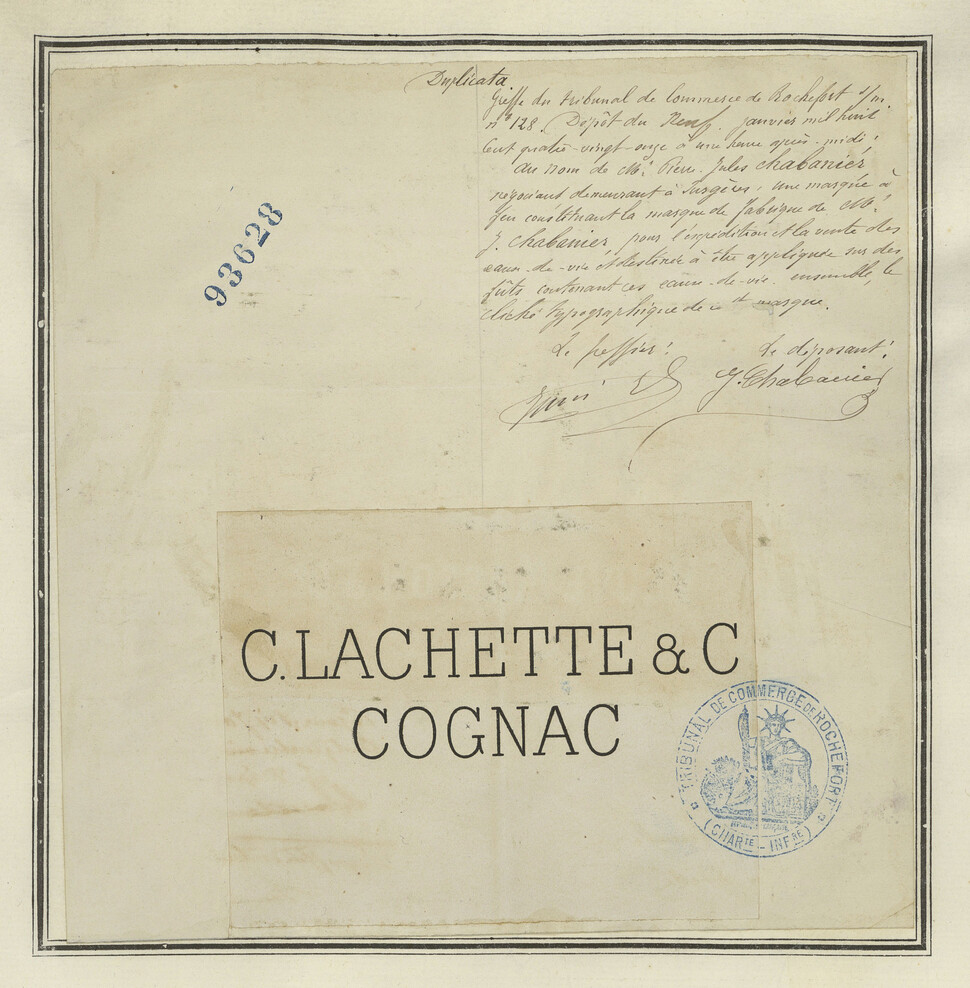 Duplicata.
Greffe du tribunal de Commerce de Rochefort s/m.
nº 128. Dépôt du Neuf janvier mil huit
Cent quatre-vingt-onze à une heure après-midi:
au nom de Mr. Pierre Jules Chabanier
négociant demeurant à Surgères, une marque à
feu constituant la marque de fabrique de Mr.
J. Chabanier, pour l'expédition et la vente des
eaux-de-vie et destinée à être appliquée sur des
fûts contenant ces eaux-de-vie ensemble, le
cliché typographique de cte marque.
Le greffier: Le déposant:
J. Chabanier
93628
C. LACHETTE & C
COGNAC
TRIBUNAL DE COMMERCE DE ROCHEFORT
(CHARTE - INFRE)